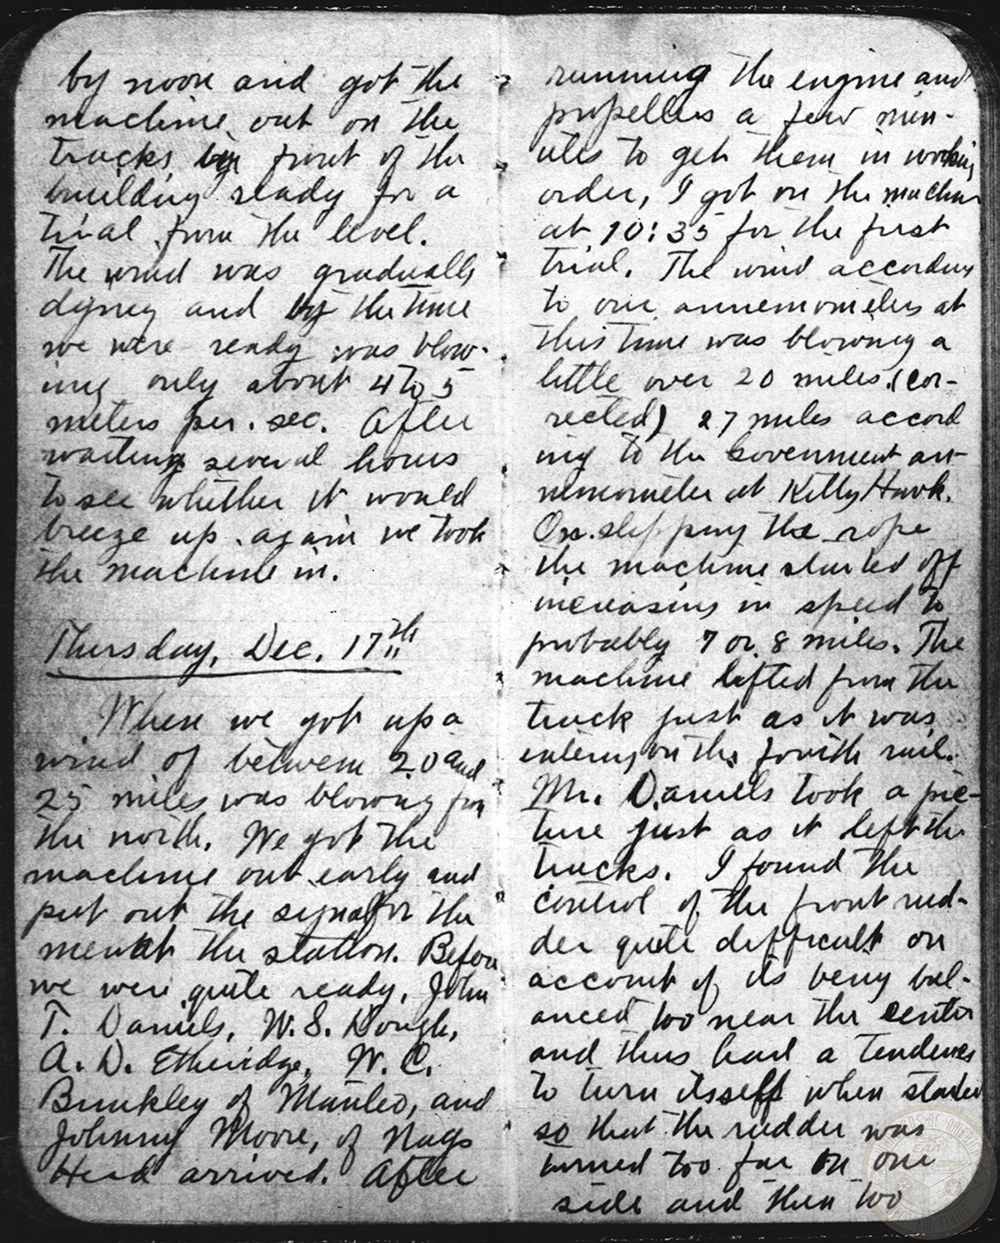 by noon and got the
machine out on the
tracks in front of the
building ready for a
trial from the level.
The wind was gradually
dyiney and by the time
we were ready was blow-
ing only about 4 to 5
meters per. sec. After
waiting several hours
to see whether it would
breeze up again we took
the machine in.
Thursday, Dec. 17th
When we got up a
wind of between 20 and
25 miles was blowing from
the north. We got the
machine out early and
put out the signal for the
men at the station. Before
we were quite ready, John
T. Daniels, W. S. Dough,
A. D. Etheridge, W. C.
Brinkley of Manteo, and
Johnny Moore, of Nags
Head arrived. After
running the engine and
propellers a few min-
utes to get them in working
order, I got on the machine
at 10:35 for the first
trial. The wind according
to our annemometers at
this time was blowing a
little over 20 miles (cor-
rected) 27 miles accord
ing to the Government an-
nemometer at Kitty Hawk.
On slipping the rope
the machine started off
increasing in speed to
probably 7 or 8 miles. The
machine lifted from the
truck just as it was
entering on the fourth rail.
Mr. Daniels took a pic-
ture just as it left the
tracks. I found the
control of the front rud-
der quite difficult on
account of its being bal-
anced too near the center
and thus had a tendency
to turn itself when started
so that the rudder was
turned too far on one
side and then too